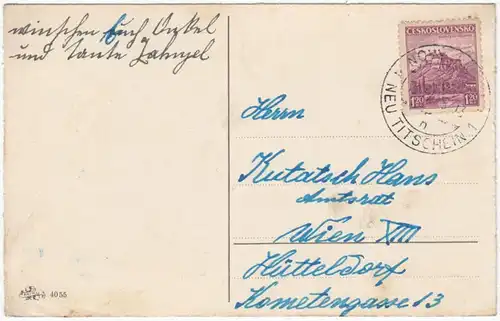 wünschen Euch Onkel
und tante
ČESKOSLOVENSKO
1.20 1.20
NEU TITSCHEIN 1
Herrn
Kutatsch Hans
Amtsrat
Wien XIII
Hütteldorf
Kometengasse 13
4055